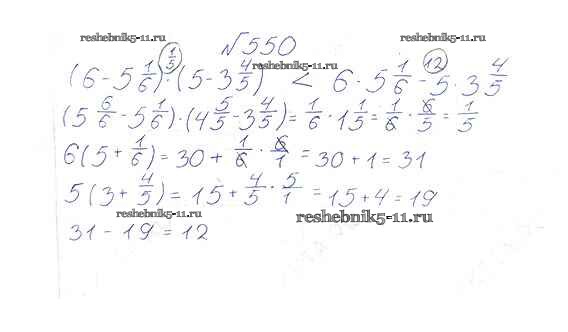 №550
reshebnik5-11.ru
reshebnik5-11.ru
1/5
12
(6 - 5 1/6) · (5 - 3 4/5) < 6 · 5 1/6 - 5 · 3 4/5
reshebnik5-11.ru
(5 6/6 - 5 1/6) · (4 5/5 - 3 4/5) = 1/6 · 1 1/5 = 1/6 · 6/5 = 1/5
6(5 + 1/6) = 30 + 1/6 · 6/1 = 30 + 1 = 31
5(3 + 4/5) = 15 + 4/5 · 5/1 = 15 + 4 = 19
reshebnik5-11.ru
reshebnik5-11.ru
31 - 19 = 12